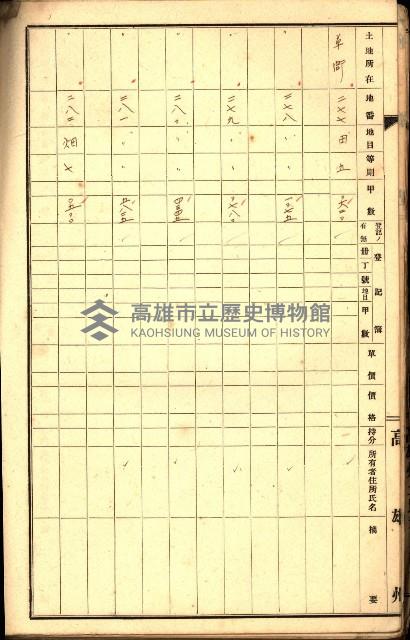 土地所在 地番 地目 等則 甲數 登記ノ有無 登記簿 冊 丁 號 地目 甲數 單價 價格 持分 所有者住所氏名 摘要
草衙 二七七 田 五
〃 二七八 〃 〃
〃 二七九 〃 〃
〃 二八〇 〃 〃
〃 二八一 〃 〃
〃 二八二 畑 七
高雄州
高雄市立歷史博物館
KAOHSIUNG MUSEUM OF HISTORY